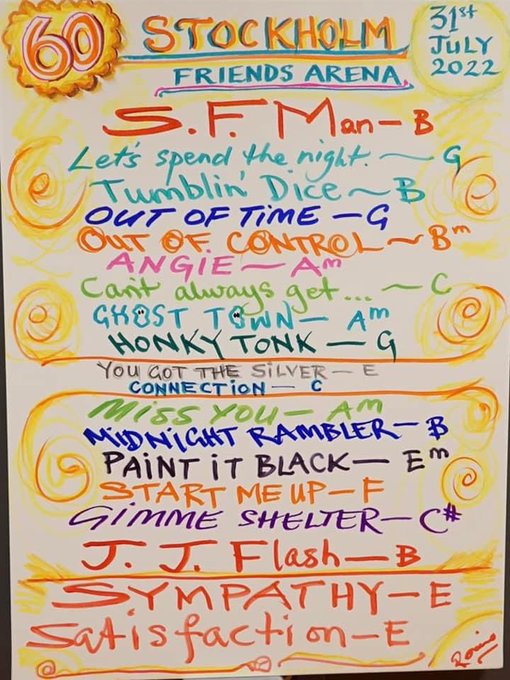 60
STOCKHOLM
FRIENDS ARENA.
31st
JULY
2022
S.F. Man - B
Let's spend the night. ~ G
Tumblin' Dice ~ B
OUT OF TIME - G
OUT OF CONTROL ~ Bm
ANGIE ~ Am
Cant always get... ~ C
GHOST TOWN - Am
HONKY TONK - G
YOU GOT THE SILVER - E
CONNECTION - C
MISS YOU - AM
MIDNIGHT RAMBLER - B
PAINT IT BLACK - Em
START ME UP - F
GIMME SHELTER - C#
J. J. Flash - B
SYMPATHY - E
Satisfaction - E
Ronnie